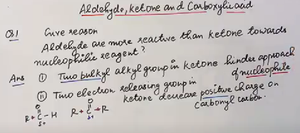 Aldehyde, ketone and Carboxylic acid
Q81 Give reason
Aldehyde are more reactive than ketone towards
nucleophilic reagent?
Ans (i) Two bulkyl alkyl group in ketone hinder approach
of nucleophile
(ii) Two electron releasing group in
ketone decrease positive charge on
Carbonyl carbon
O O
R-C-H R-C-R
δ+ δ+